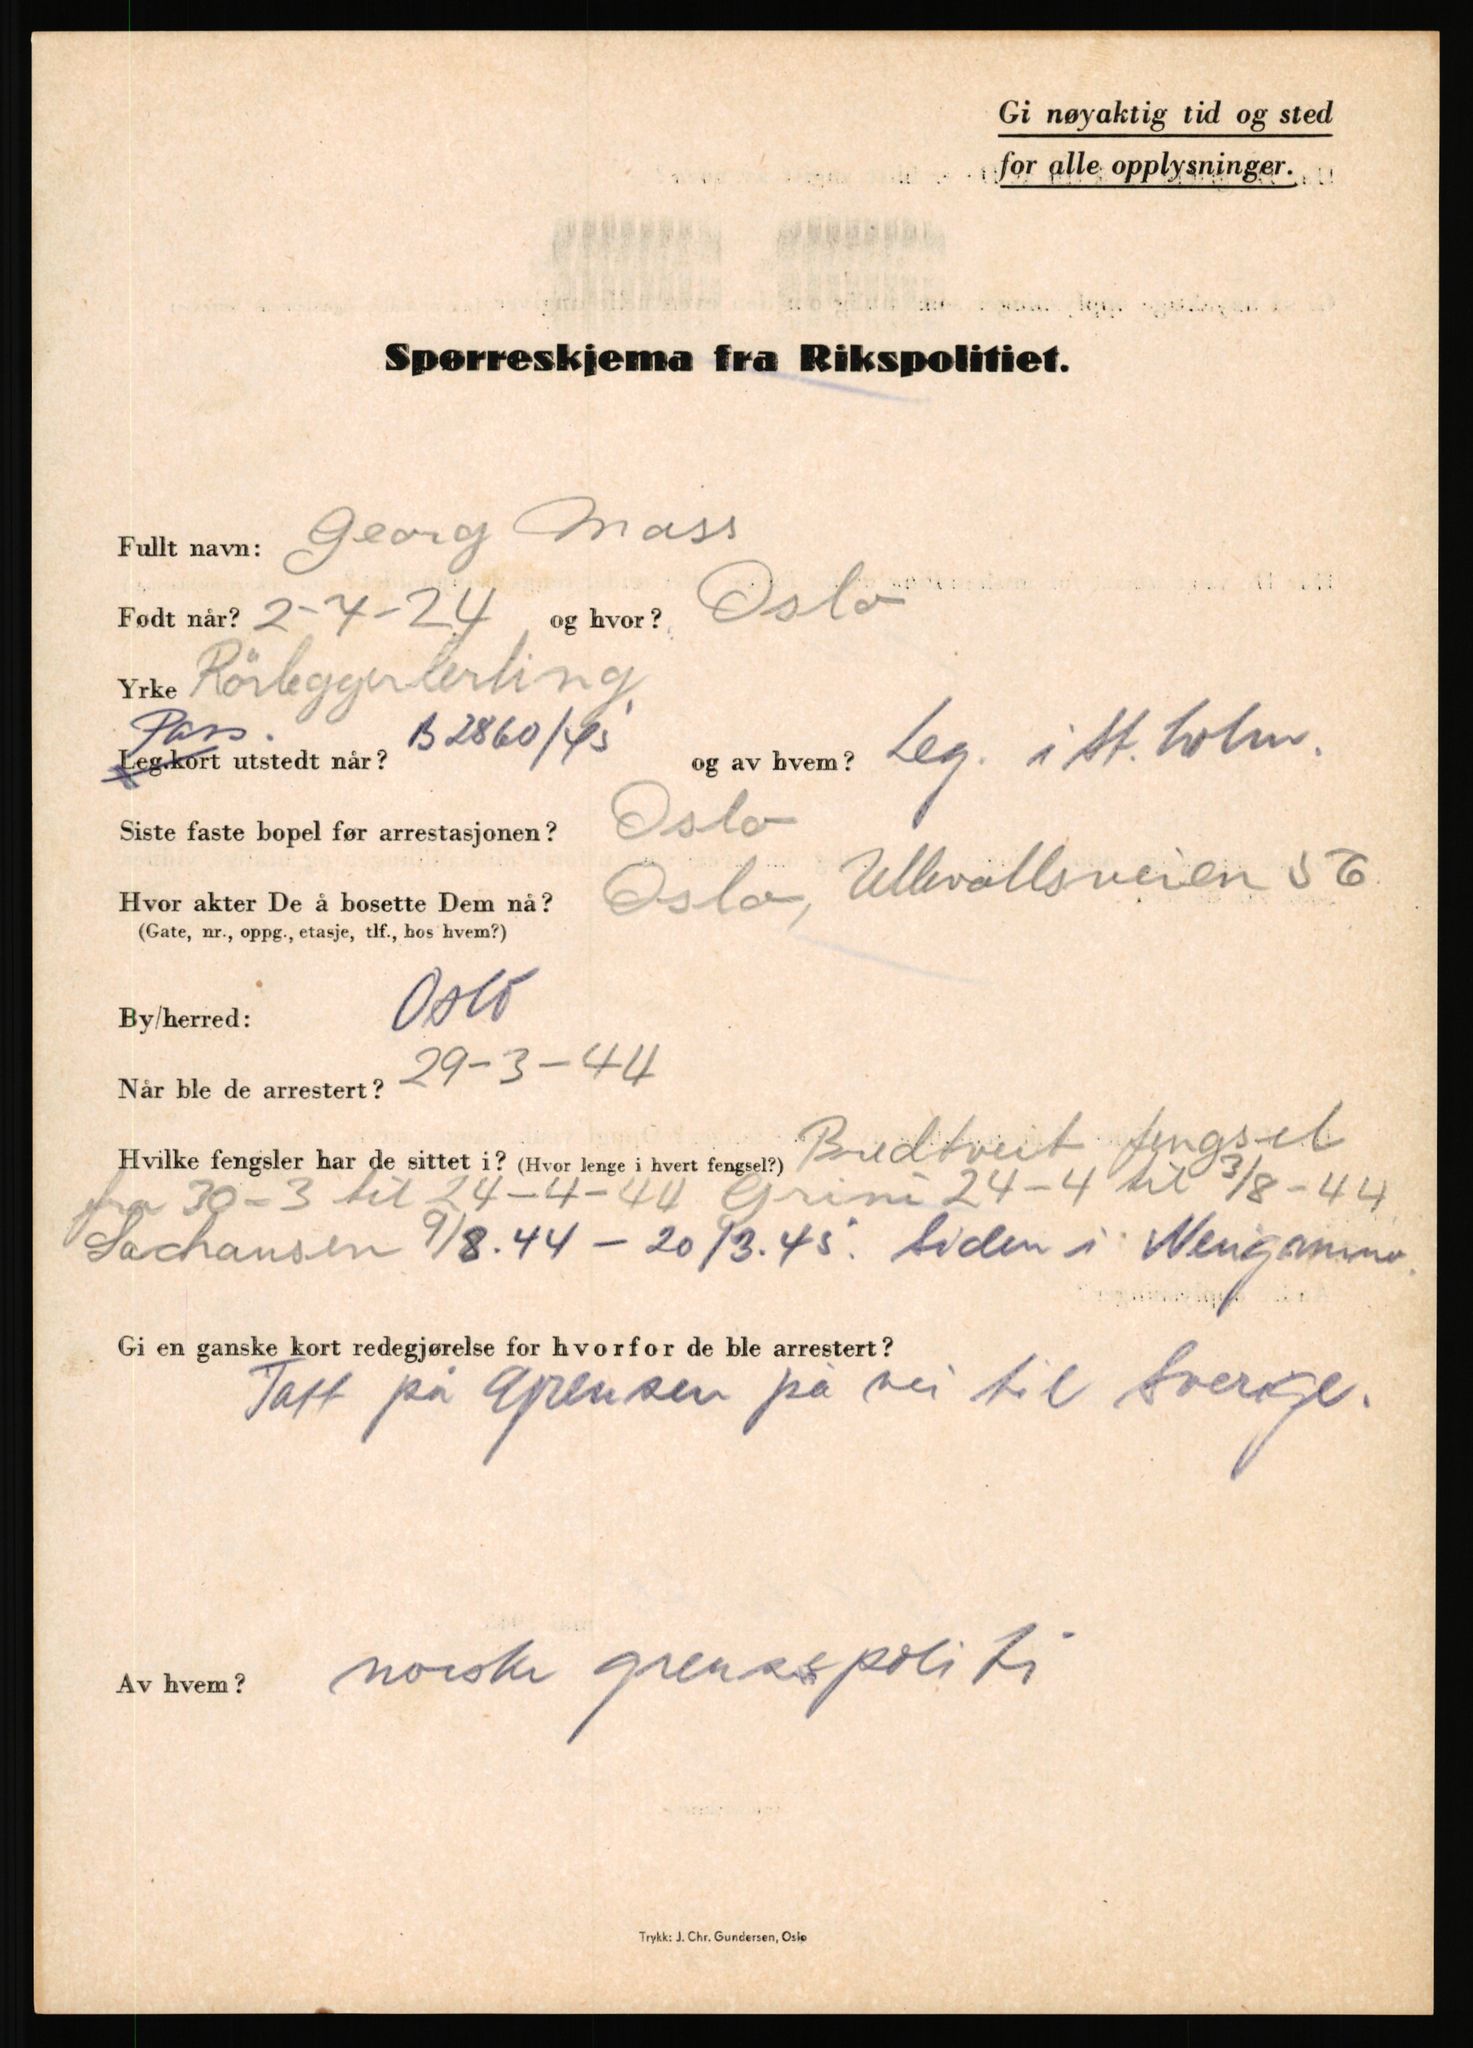 Gi nøyaktig tid og sted
for alle opplysninger.
Spørreskjema fra Rikspolitiet.
Fullt navn: Georg Mass
Født når? 2-7-24 og hvor? Oslo
Yrke Rörleggerlerling
Pass.
Leg.kort utstedt når? B 2860/45 og av hvem? Leg. i St.holm.
Siste faste bopel før arrestasjonen? Oslo
Hvor akter De å bosette Dem nå? Oslo, Ullevollsveien 56
(Gate, nr., oppg., etasje, tlf., hos hvem?)
By/herred: Oslo
Når ble de arrestert? 29-3-44
Hvilke fengsler har de sittet i? (Hvor lenge i hvert fengsel?) Bredtveit fengsel
fra 30-3 til 24-4-44 Grini 24-4 til 3/8-44
Sachausen 9/8.44 - 20/3.45. siden i
Gi en ganske kort redegjørelse for hvorfor de ble arrestert?
Tatt på Grensen på vei til Sverge.
Av hvem? norske grensepoliti
Trykk: J. Chr. Gundersen, Oslo